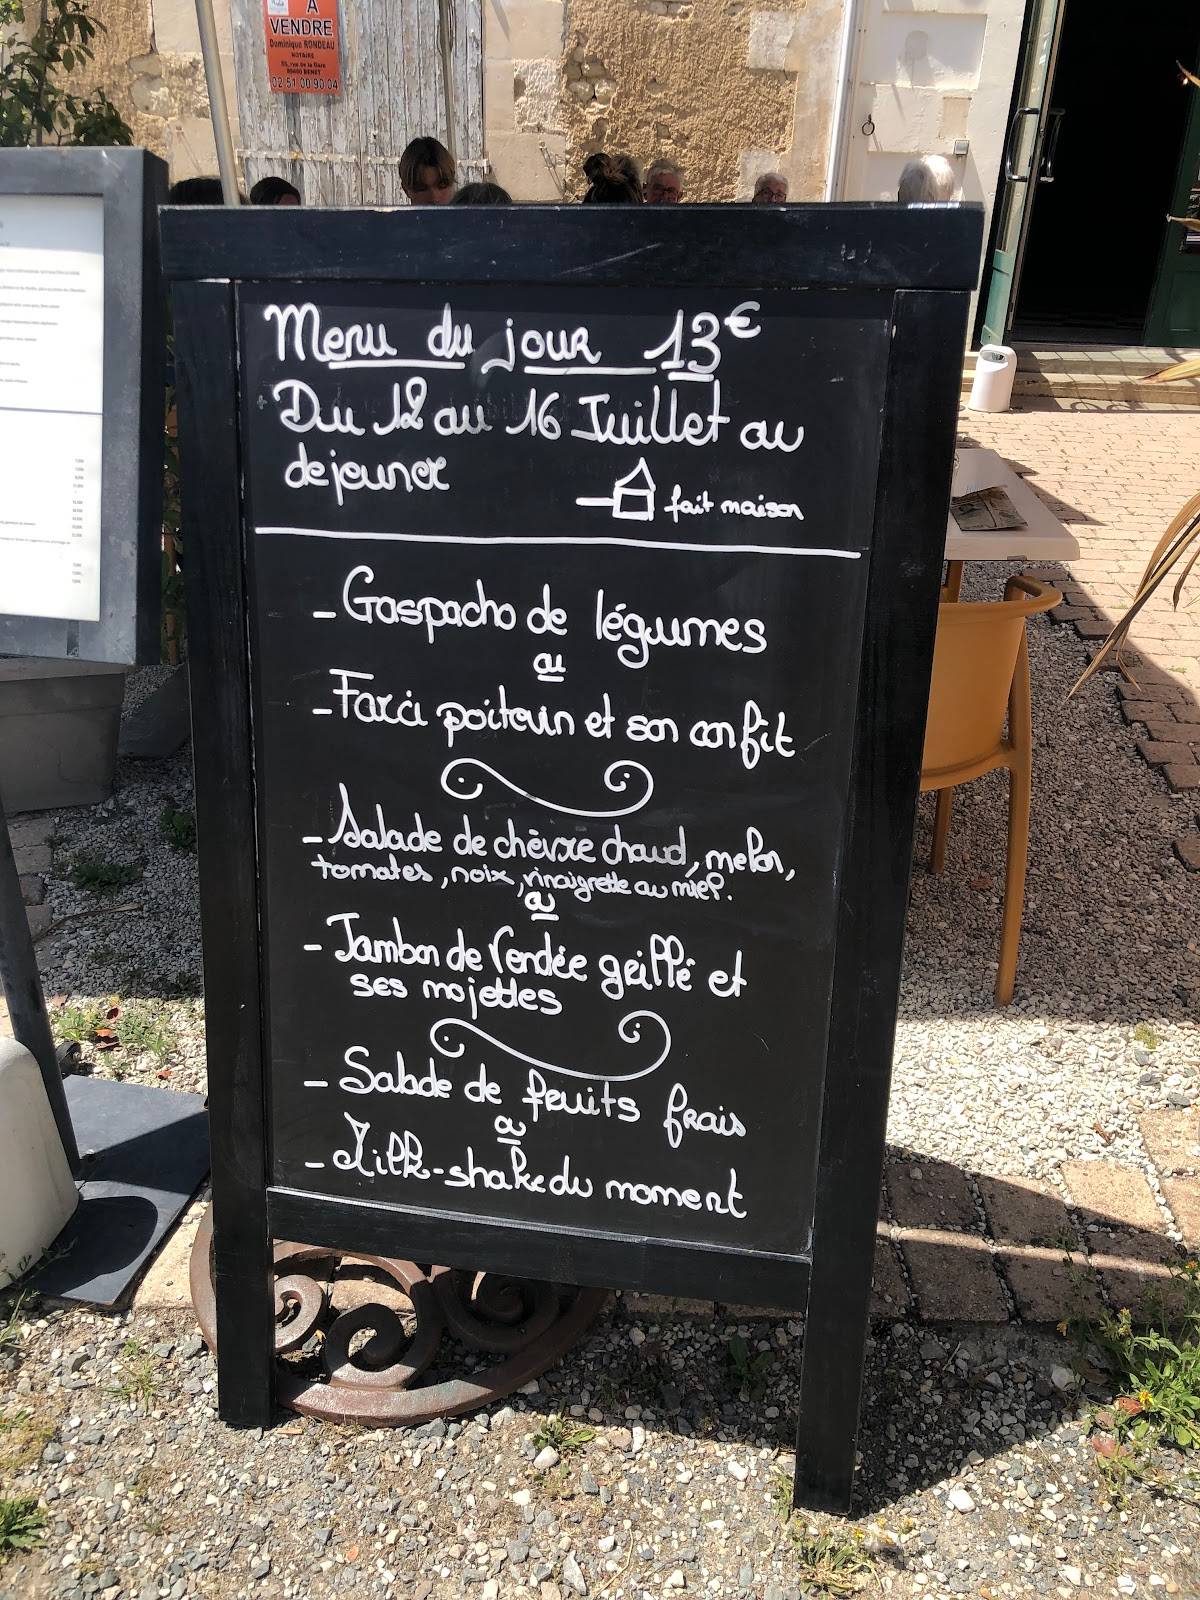 A
VENDRE
Dominique RONDEAU
NOTAIRE
02 51 00 90 04
Menu du jour 13€
Du 12 au 16 Juillet au
dejeuner
fait maison
- Gaspacho de légumes
ou
- Farci poitevin et son confit
- Salade de chèvre chaud, melon,
tomates, noix, vinaigrette au miel.
ou
- Jambon de Vendée grillé et
ses mojettes
- Salade de fruits frais
ou
- Milk-shake du moment